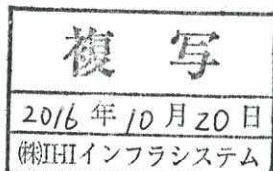 複写
2016年10月20日
㈱IHIインフラシステム